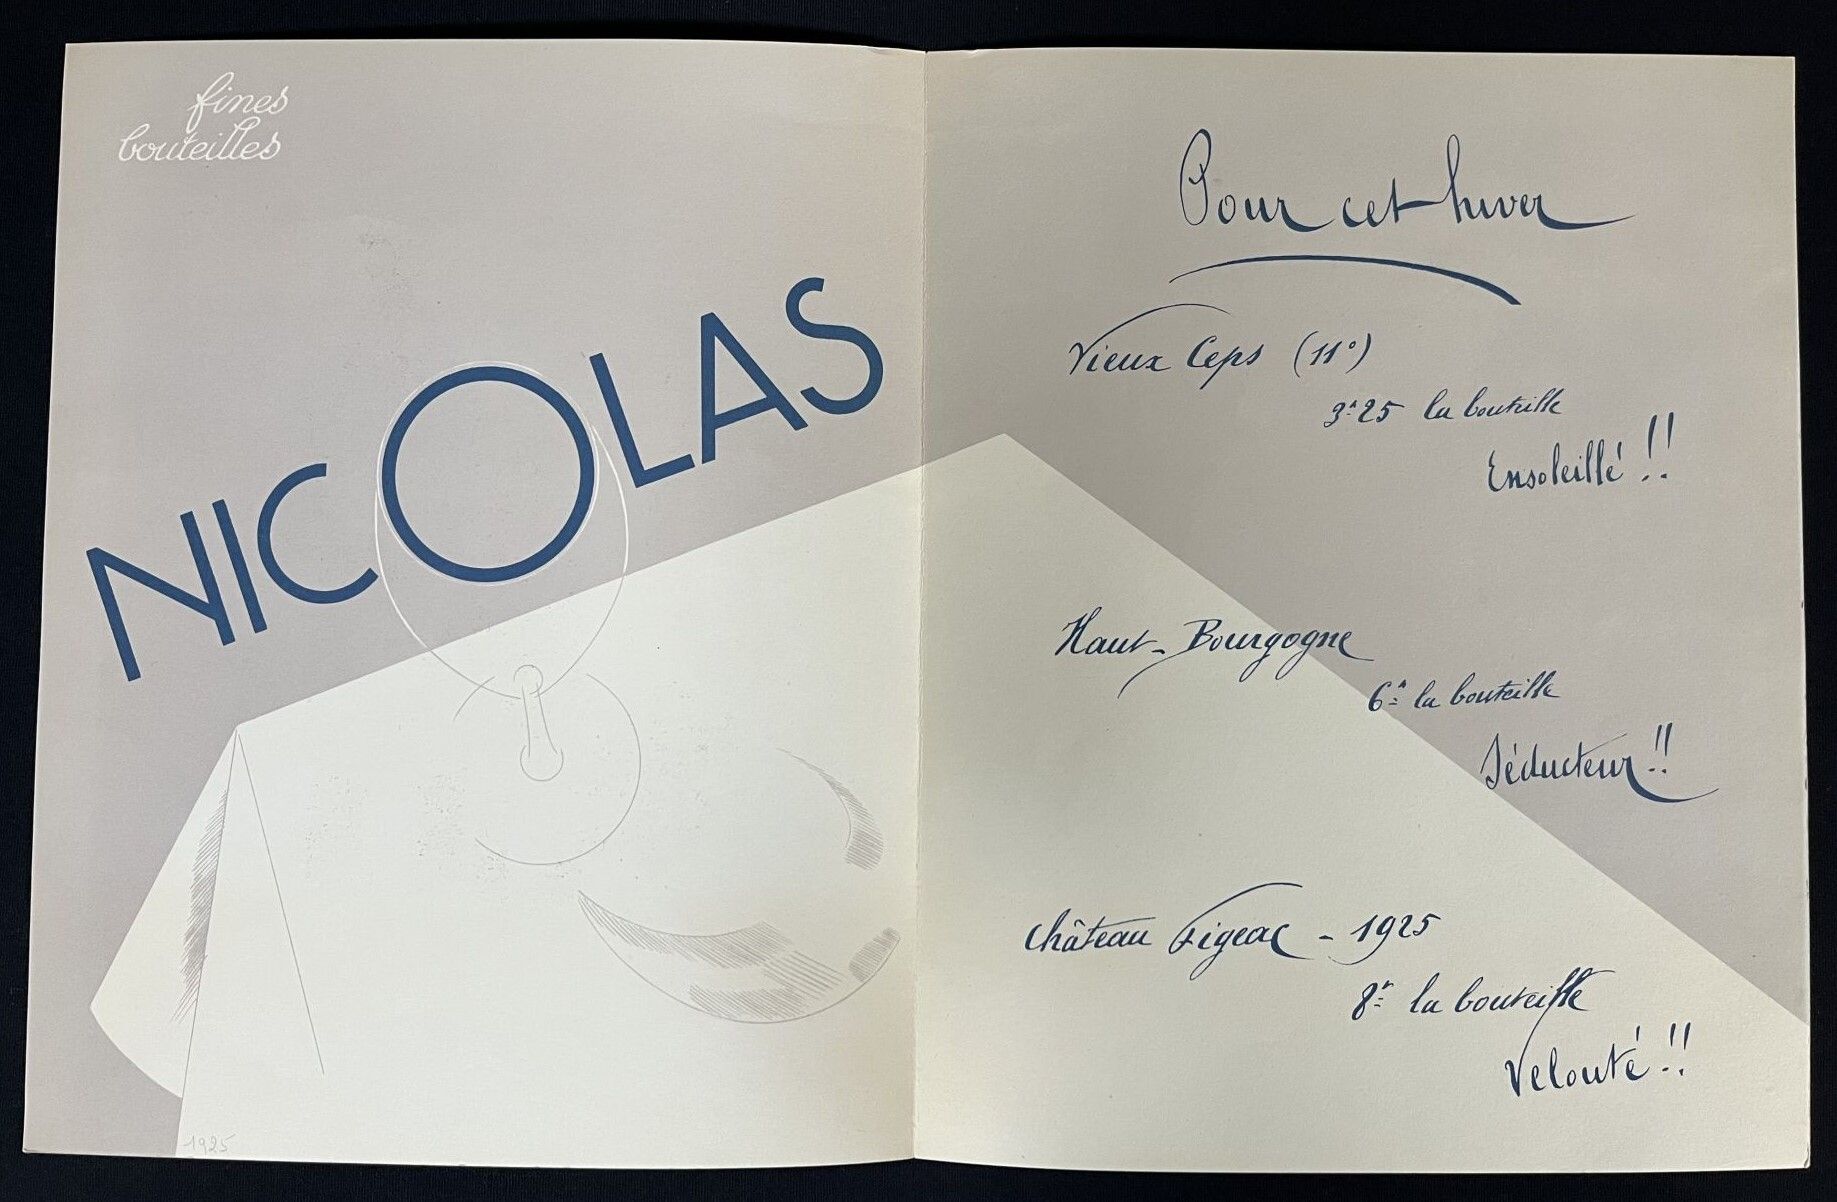 fines
bouteilles
NICOLAS
1925
Pour cet hiver
Vieux Ceps (11°)
3fr 25 la bouteille
Ensoleillé !!
Haut-Bourgogne
6fr la bouteille
Séducteur !!
Château Figeac - 1925
8fr la bouteille
Velouté !!